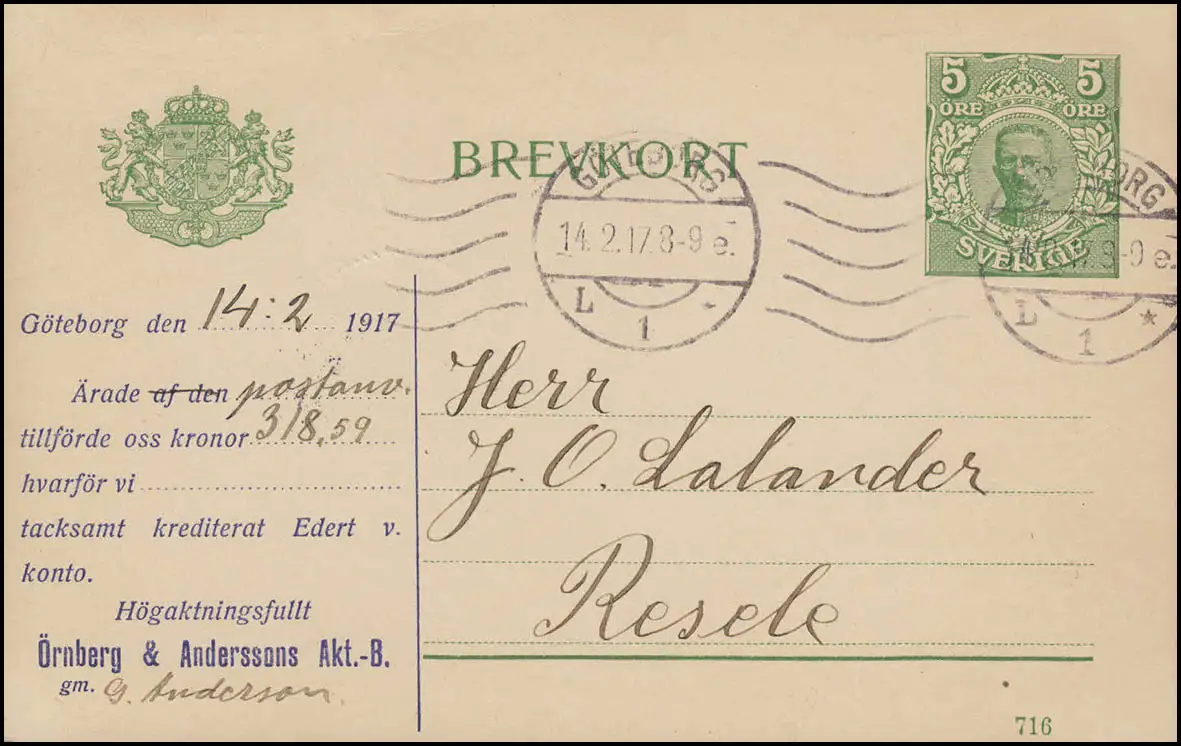 5 5
ÖRE ÖRE
SVERIGE
BREVKORT
GÖTEBORG
14.2.17.8-9 e.
L 1 *
14.2.17.8-9 e.
L 1 *
Göteborg den 14:2 1917
Ärade af den postanv.
tillförde oss kronor 318,59
hvarför vi
tacksamt krediterat Edert v.
konto.
Högaktningsfullt
Örnberg & Anderssons Akt.-B.
gm. G. Anderson.
Herr
J. O. Lalander
Resele
716